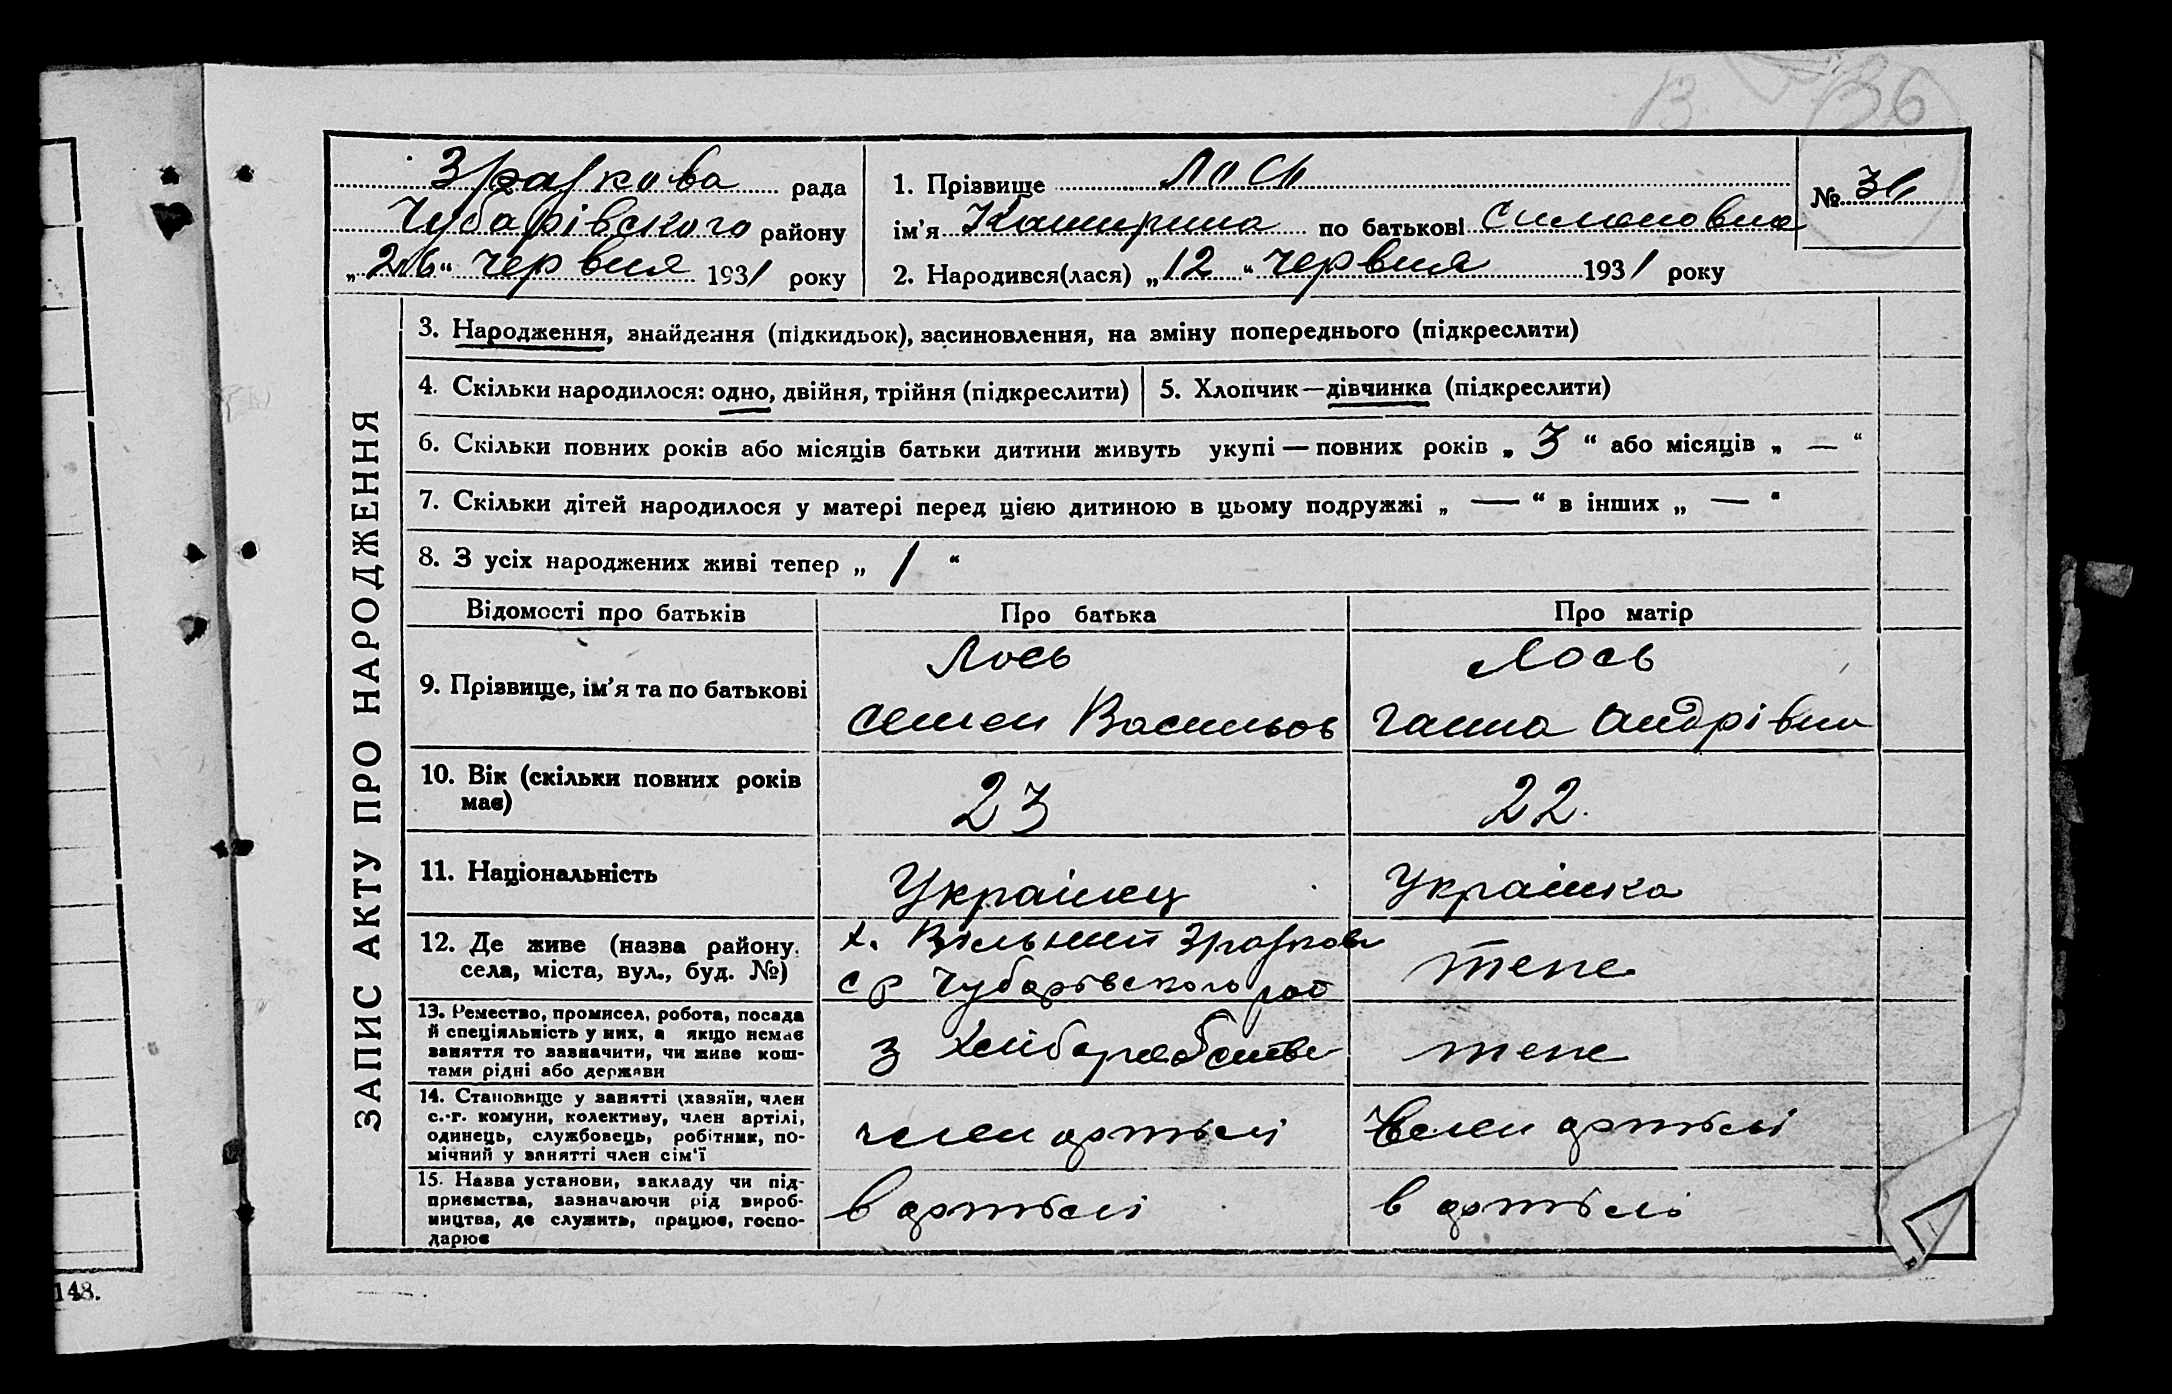 136
Зразкова рада
Чубарівского району
„26“ червня 1931 року
1. Прізвище Лось
ім'я по батькові Сименовна
2. Народився(лася) „12“ червня 1931 року
№ 36
ЗАПИС АКТУ ПРО НАРОДЖЕННЯ
3. Народження, знайдення (підкидьок), засиновлення, на зміну попереднього (підкреслити)
4. Скільки народилося: одно, двійня, трійня (підкреслити)
5. Хлопчик—дівчинка (підкреслити)
6. Скільки повних років або місяців батьки дитини живуть укупі — повних років „ 3 “ або місяців „ — “
7. Скільки дітей народилося у матері перед цією дитиною в цьому подружжі „ — “ в інших „ — “
8. З усіх народжених живі тепер „ 1 “
Відомості про батьків
Про батька
Про матір
9. Прізвище, ім'я та по батькові
Лось
Семен Васильов
Лось
Ганна Андрівна
10. Вік (скільки повних років
має)
23
22.
11. Національність
Українец
Українка
12. Де живе (назва району,
села, міста, вул., буд. №)
х. Вільний Зразков
с р Чубарівского рай
теж
13. Ремество, промисел, робота, посада
й спеціяльність у них, а якщо немає
заняття то зазначити, чи живе кош-
тами рідні або держави
з хлібаробства
теж
14. Становище у занятті (хазяїн, член
с.-г. комуни, колективу, член артілі,
одинець, службовець, робітник, по-
мічний у занятті член сім'ї
член артілі
член артілі
15. Назва установи, закладу чи під-
приємства, зазначаючи рід вироб-
ництва, де служить, працює, госпо-
дарює
в артілі
в артілі
148.